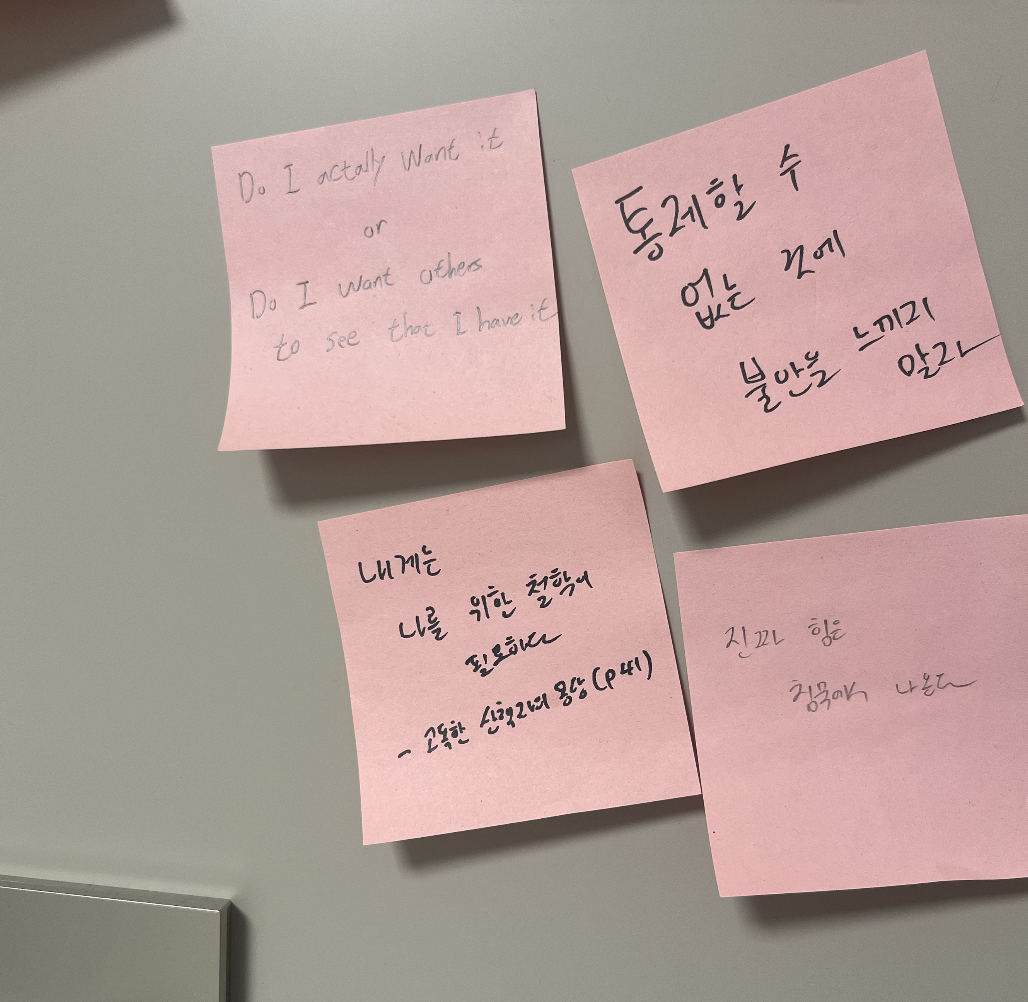 Do I actally want it
or
Do I want others
to see that I have it
통제할 수
없는 것에
불안을 느끼지
말라
내게는
나를 위한 철학이
필요하다
- 고독한 산책자의 몽상 (p 41)
진짜 힘은
침묵에서 나온다